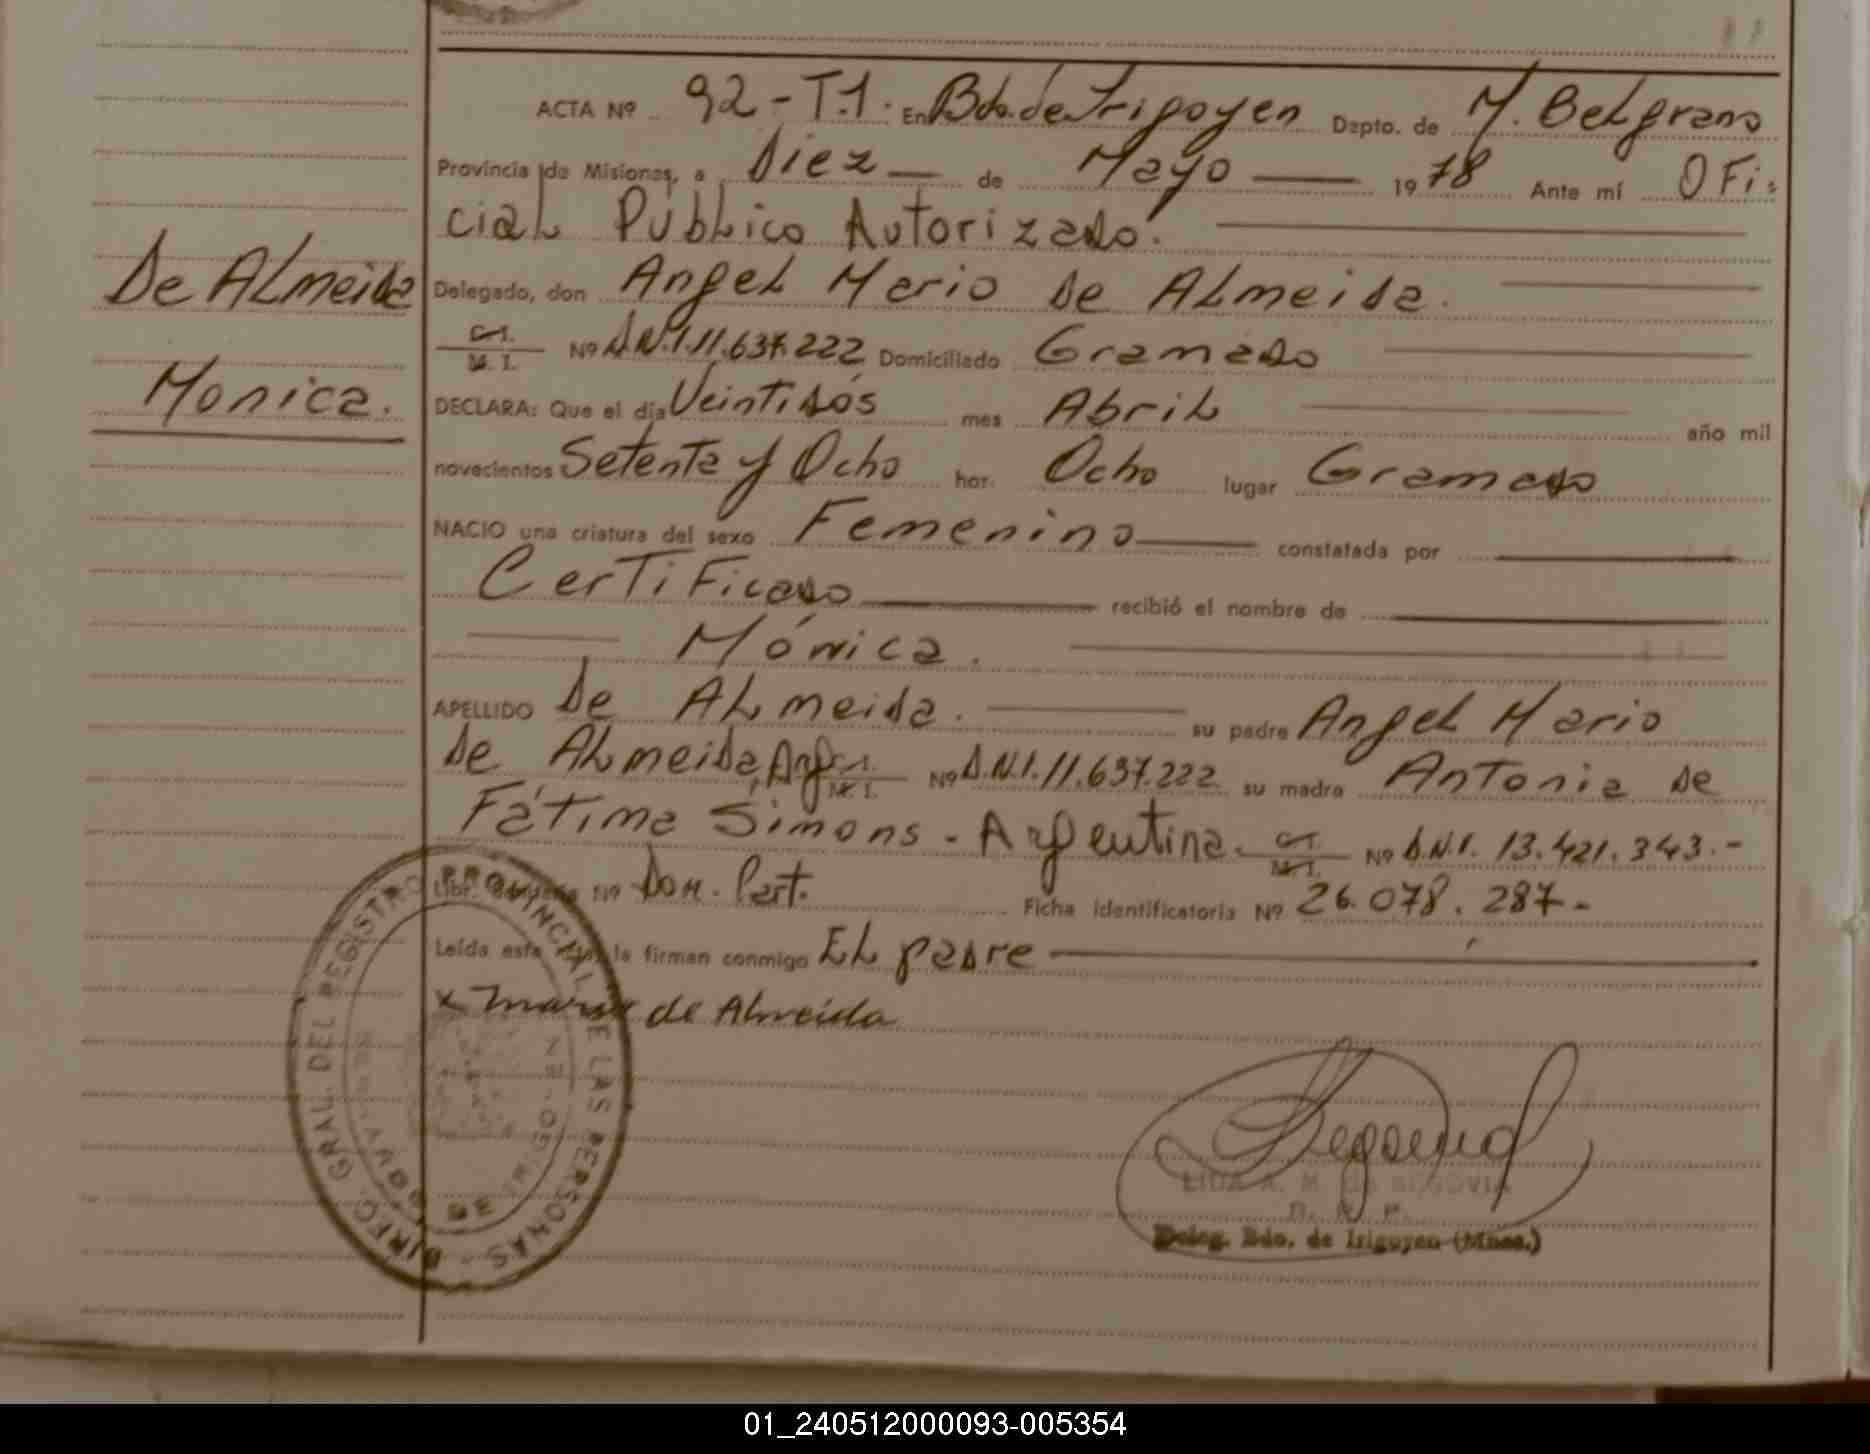 ACTA Nº 92-T.1. En Bdo. de Irigoyen Dzpto. de M. Belgrano
Provincia de Misiones, a Diez de Mayo 1978 Ante mí OFi-
cial Público Autorizado.
De Almeida
Delegado, don Angel Mario De Almeida.
C.I.
M. I. Nº D.N.I. 11.637.222 Domiciliado Gramado
Monica.
DECLARA: Que el día Veintidós mes Abril año mil
novecientos Setenta y Ocho hor. Ocho lugar Gramado
NACIO una criatura del sexo Femenino constatada por
Certificado recibió el nombre de
Mónica.
APELLIDO De Almeida. su padre Angel Mario
De Almeida, Arg. C.I. M. I. Nº D.N.I. 11.637.222 su madre Antonia De
Fátima Simons - Argentina. C.I. M.I. Nº D.N.I. 13.421.343.-
Nº Dom. Part. Ficha identificatoria Nº 26.078.287-
Leída esta la firman conmigo El padre
x Mario de Almeida
DIREC. GRAL. DEL REGISTRO PROVINCIAL DE LAS PERSONAS -
LIDA A. M. de SEGOVIA
Deleg. Bdo. de Irigoyen (Mnes.)
01_240512000093-005354